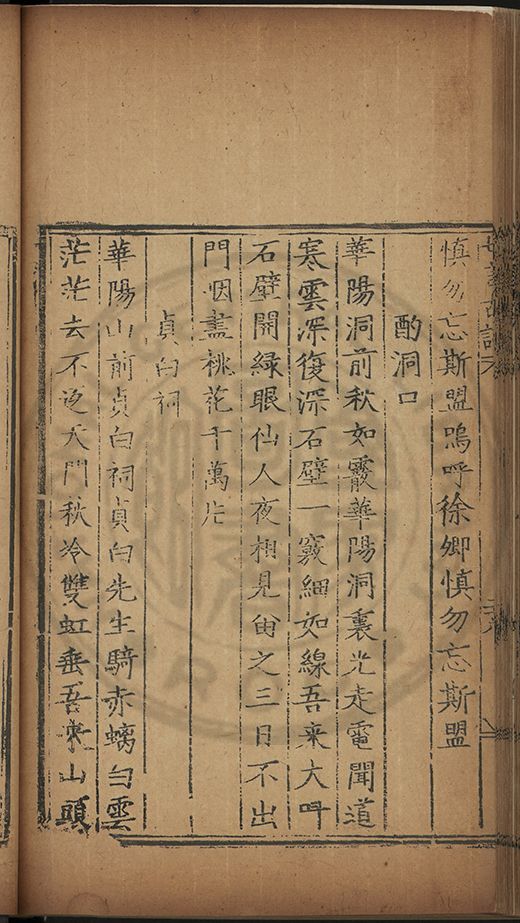 慎勿忘斯盟嗚呼徐卿慎勿忘斯盟
酌洞口
華陽洞前秋如霰華陽洞裏光走電聞道
寒雲深復深石壁一竅細如線吾來大呌
石壁開綠眼仙人夜相見留之三日不出
門咽盡桃花千萬片
貞白祠
華陽山前貞白祠貞白先生騎赤螭白雲
茫茫去不返天門秋冷雙虹垂吾來山頭